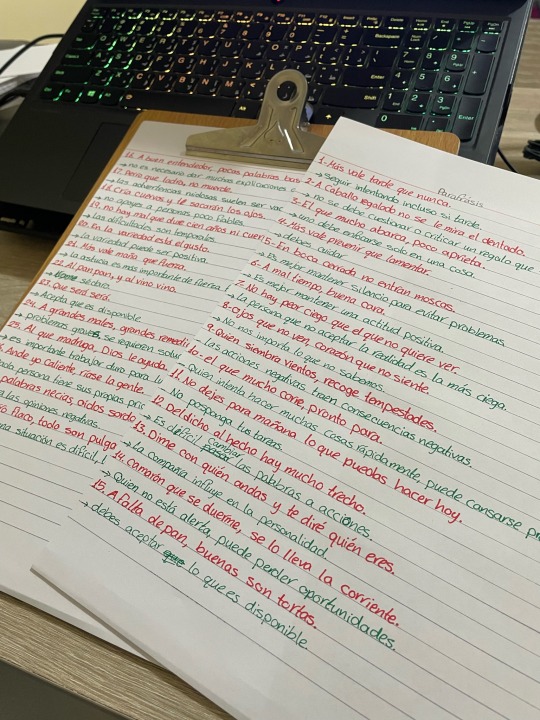 Paráfrasis
1- Más vale tarde que nunca.
→ seguir intentando incluso si tarde.
2- A Caballo regalado no se le mira el dentado.
→ no se debe cuestionar o criticar un regalo que
3- El que mucho abarca, poco aprieta.
→ uno debe enfocarse solo en una cosa.
4- Más vale prevenir que lamentar.
→ debes cuidar
5- En boca cerrada no entran moscas.
→ Es mejor mantener silencio para evitar problemas
6- A mal tiempo, buena cara.
→ Es mejor mantener una actitud positiva.
7. No hay peor ciego que el que no quiere ver.
→ la persona que no aceptar la realidad es la más ciega.
8- Ojos que no ven, corazón que no siente.
→ No nos importa lo que no sabemos.
9. Quien siembra vientos, recoge tempestades.
→ las acciones negativas traen consecuencias negativas.
10- el que mucho corre, pronto para.
Quien intenta hacer muchas cosas rápidamente, puede cansarse
11. No dejes para mañana lo que puedas hacer hoy.
No posponga tus tareas.
12. Del dicho al hecho hay mucho trecho.
→ Es difícil cambiar las palabras a acciones.
13. Dime con quién andas y te diré quién eres.
→ La compañía influye en la personalidad.
14. Camarón que se duerme, se lo lleva la corriente.
→ Quien no está alerta, puede perder oportunidades.
15. A falta de pan, buenas son tortas.
→ debes aceptar lo que es disponible
16. A buen entendedor, pocas palabras bas
→ no es necesario dar muchas explicaciones
17. Perro que ladra, no muerde.
→ las advertencias ruidosas suelen ser va
18. Cría cuervos y te sacarán los ojos.
→ no apoyes a personas poco fiables
19. no hay mal que dure cien años ni cuer
→ las dificultades son temporales
20. En la variedad está el gusto.
→ la variedad puede ser positiva
21. Más vale maña que fuerza.
→ la astucia es más importante de fuerza
22. Al pan pan, y al vino vino.
→ se directa
23. Que será será.
→ Acepta que es disponible
24. A grandes males, grandes remedi
→ problemas graves, se requieren soluc
25. Al que madruga, Dios le ayuda.
→ es importante trabajar duro para lu
Ande yo caliente, ríase la gente.
persona tiene sus propias pri
palabras necias oídos sordo
las opiniones negativas.
flaco, todo son pulga
situación es difícil,